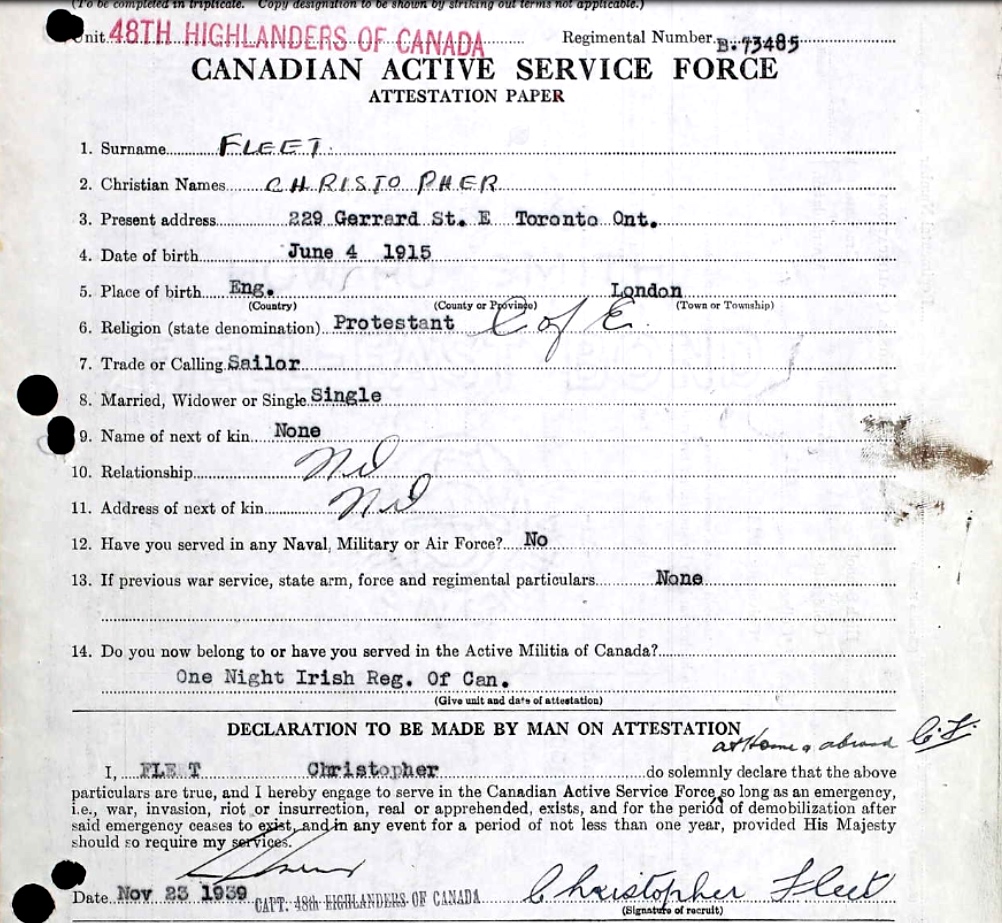 (To be completed in triplicate. Copy designation to be shown by striking out terms not applicable.)
Unit 48TH HIGHLANDERS OF CANADA Regimental Number B.73485
CANADIAN ACTIVE SERVICE FORCE
ATTESTATION PAPER
1. Surname FLEET.
2. Christian Names CHRISTOPHER
3. Present address 229 Gerrard St. E Toronto Ont.
4. Date of birth June 4 1915
5. Place of birth Eng. London
(Country) (County or Province) (Town or Township)
6. Religion (state denomination) Protestant C of E.
7. Trade or Calling Sailor
8. Married, Widower or Single Single
9. Name of next of kin None
10. Relationship Nil
11. Address of next of kin Nil
12. Have you served in any Naval, Military or Air Force? No
13. If previous war service, state arm, force and regimental particulars None
14. Do you now belong to or have you served in the Active Militia of Canada?
One Night Irish Reg. Of Can.
(Give unit and date of attestation)
DECLARATION TO BE MADE BY MAN ON ATTESTATION
at Home & abroad C.F.
I, FLEET Christopher do solemnly declare that the above
particulars are true, and I hereby engage to serve in the Canadian Active Service Force so long as an emergency,
i.e., war, invasion, riot or insurrection, real or apprehended, exists, and for the period of demobilization after
said emergency ceases to exist, and in any event for a period of not less than one year, provided His Majesty
should so require my services.
Date Nov 23 1939 CAPT. 48th HIGHLANDERS OF CANADA Christopher Fleet
(Signature of recruit)